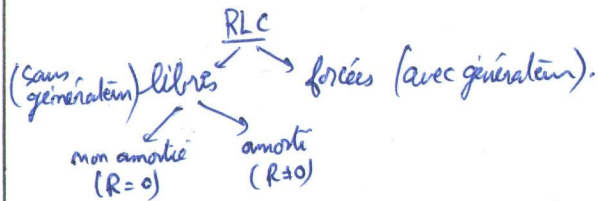 RLC
(sans générateur) libres forcées (avec générateur).
non amortie amorti
(R=0) (R≠0)